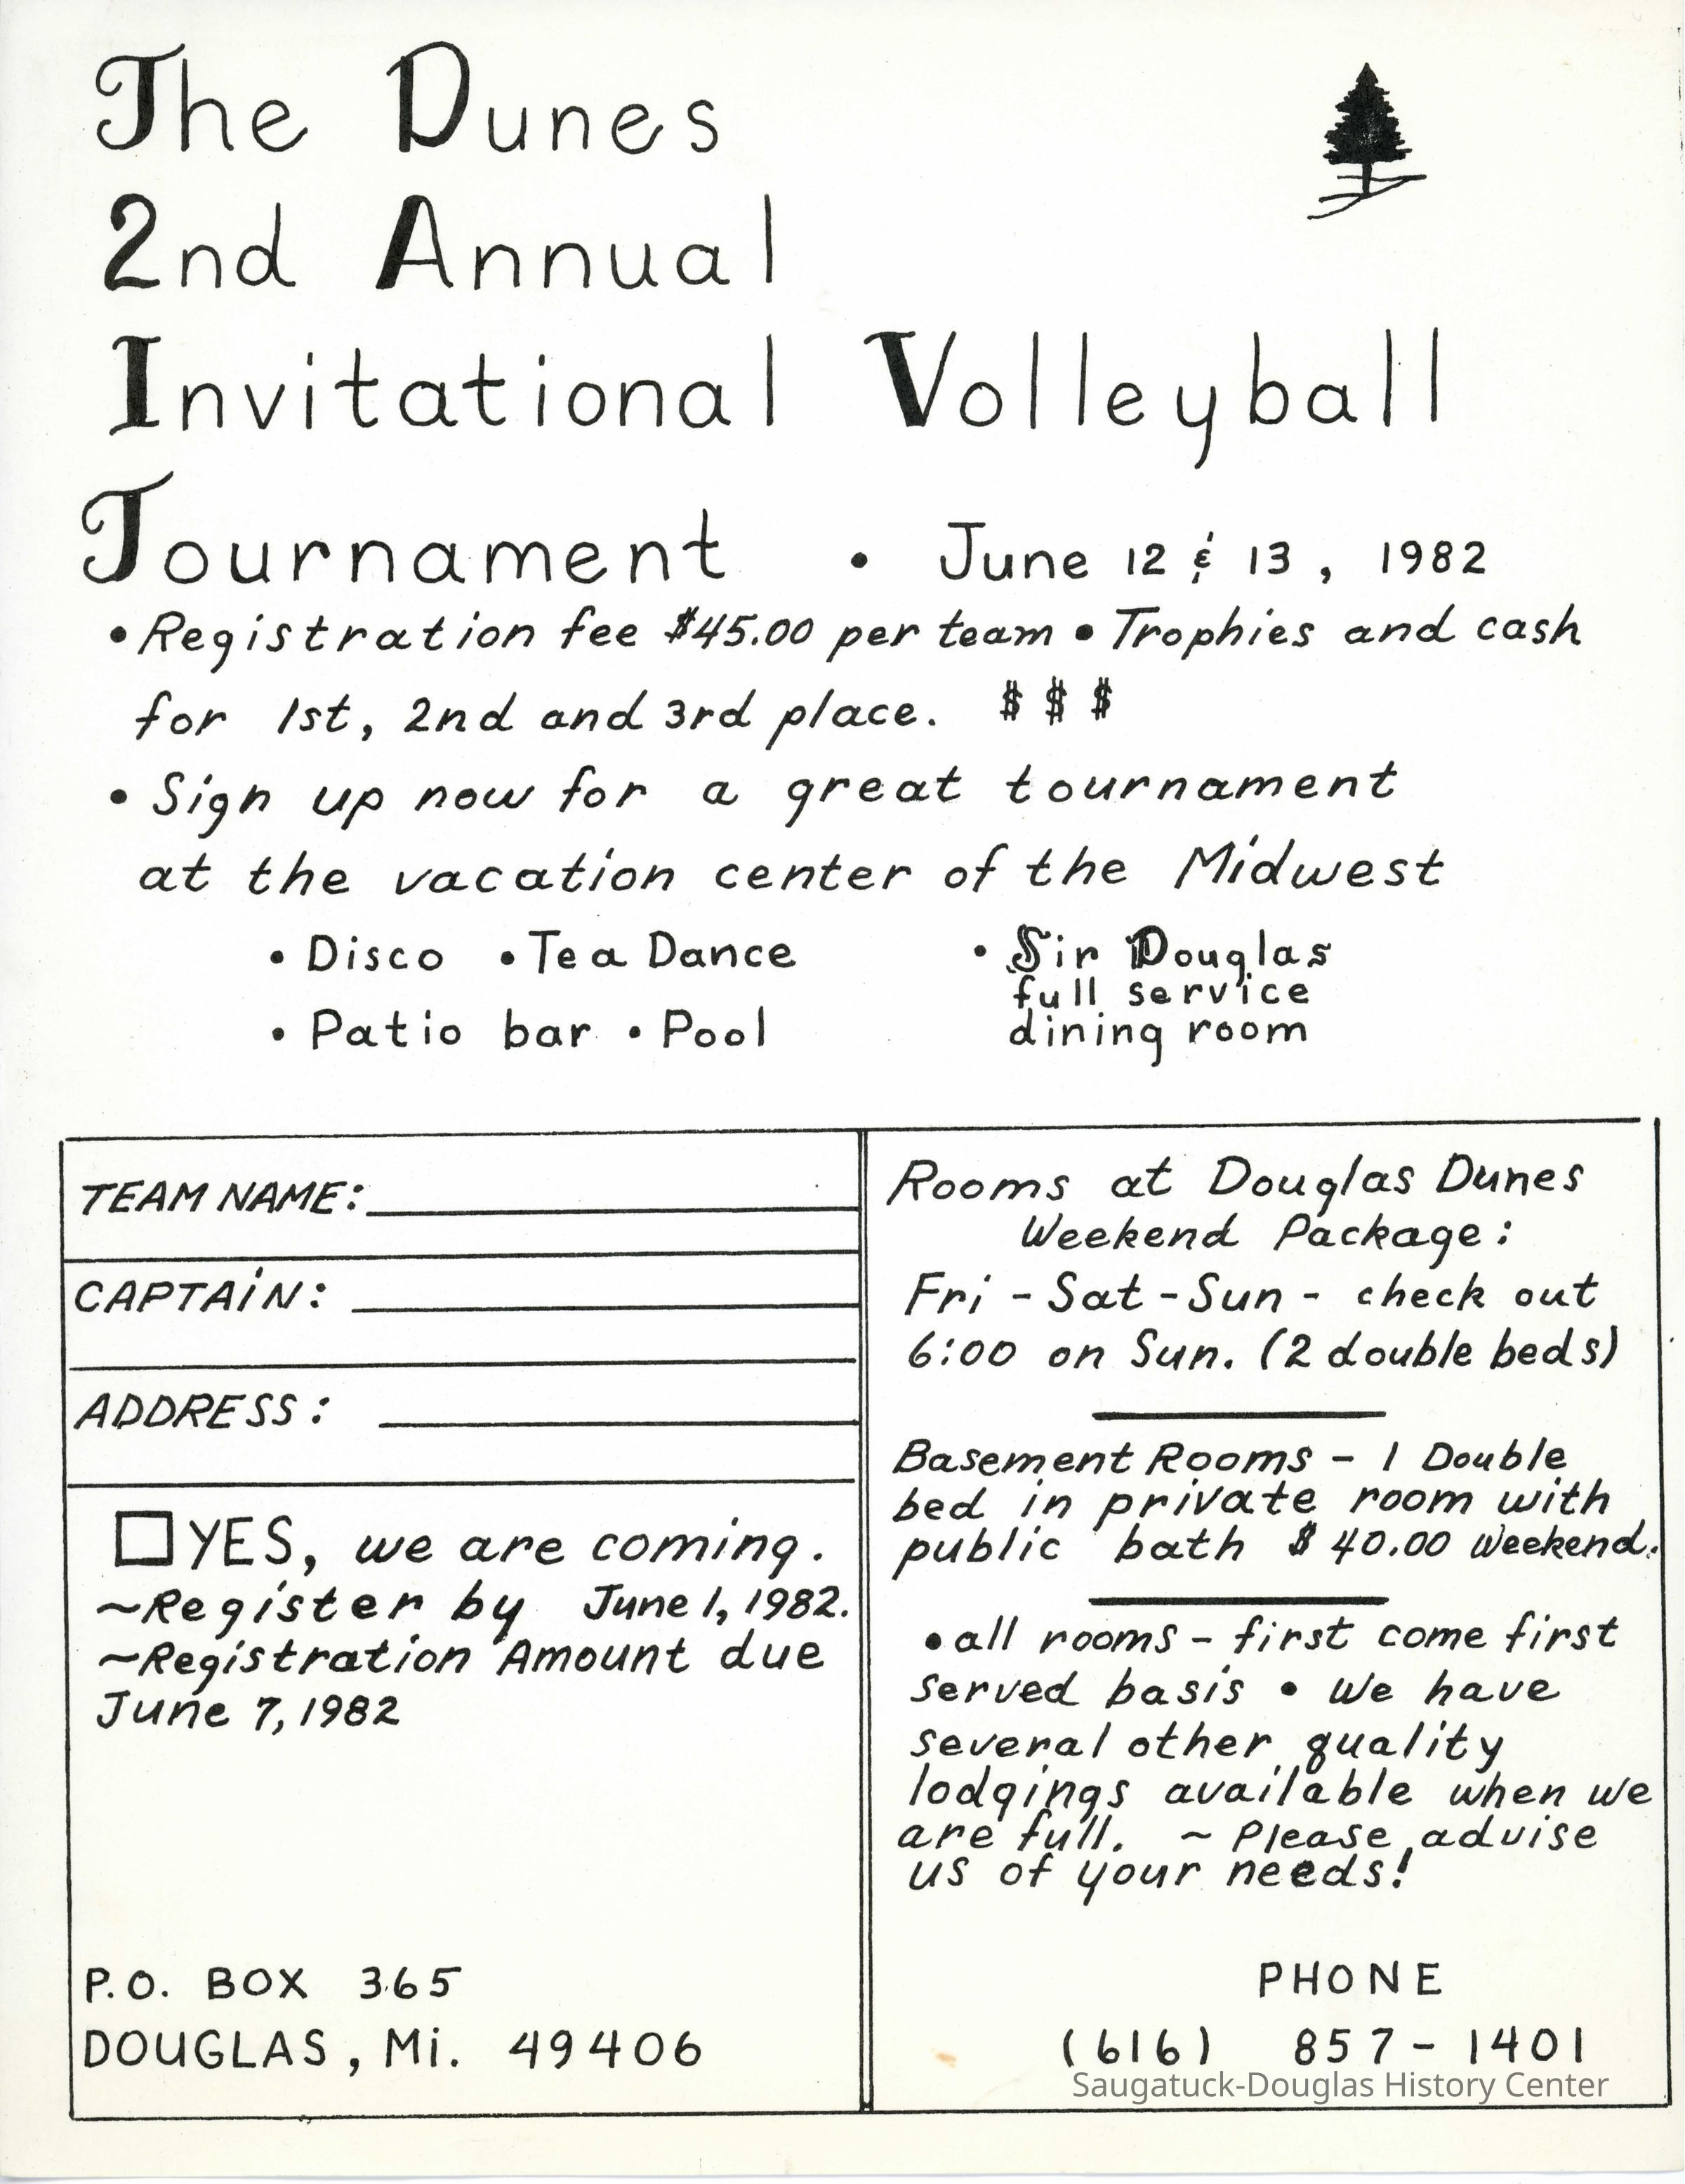 The Dunes
2nd Annual
Invitational Volleyball
Tournament • June 12 & 13, 1982
• Registration fee $45.00 per team • Trophies and cash
for 1st, 2nd and 3rd place. $ $ $
• Sign up now for a great tournament
at the vacation center of the Midwest
• Disco • Tea Dance
• Patio bar • Pool
• Sir Douglas
full service
dining room
TEAM NAME:
CAPTAiN:
ADDRESS:
YES, we are coming.
~Register by June 1, 1982.
~Registration Amount due
June 7, 1982
P.O. BOX 365
DOUGLAS, Mi. 49406
Rooms at Douglas Dunes
Weekend Package:
Fri - Sat - Sun - check out
6:00 on Sun. (2 double beds)
Basement Rooms - 1 Double
bed in private room with
public bath $40.00 Weekend.
• all rooms - first come first
served basis • We have
several other quality
lodgings available when we
are full. ~ Please advise
us of your needs!
PHONE
(616) 857-1401
Saugatuck-Douglas History Center